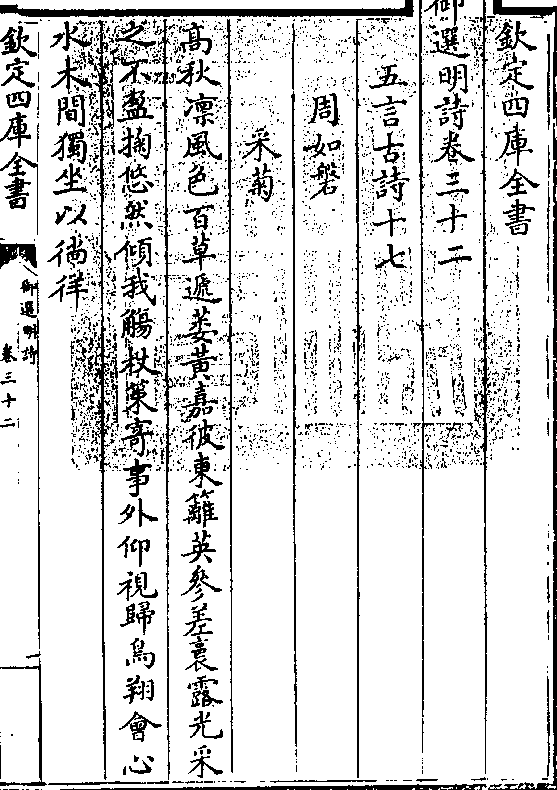 欽定四庫全書
御選明詩卷三十二
五言古詩十七
周如磐
采菊
高秋凛風色百草遞萎黃嘉彼東籬英參差裛露光采
之不盈掬悠然傾我觴杖策寄事外仰視歸鳥翔會心
水木間獨坐以徜徉
欽定四庫全書
御選明詩
卷三十二
一